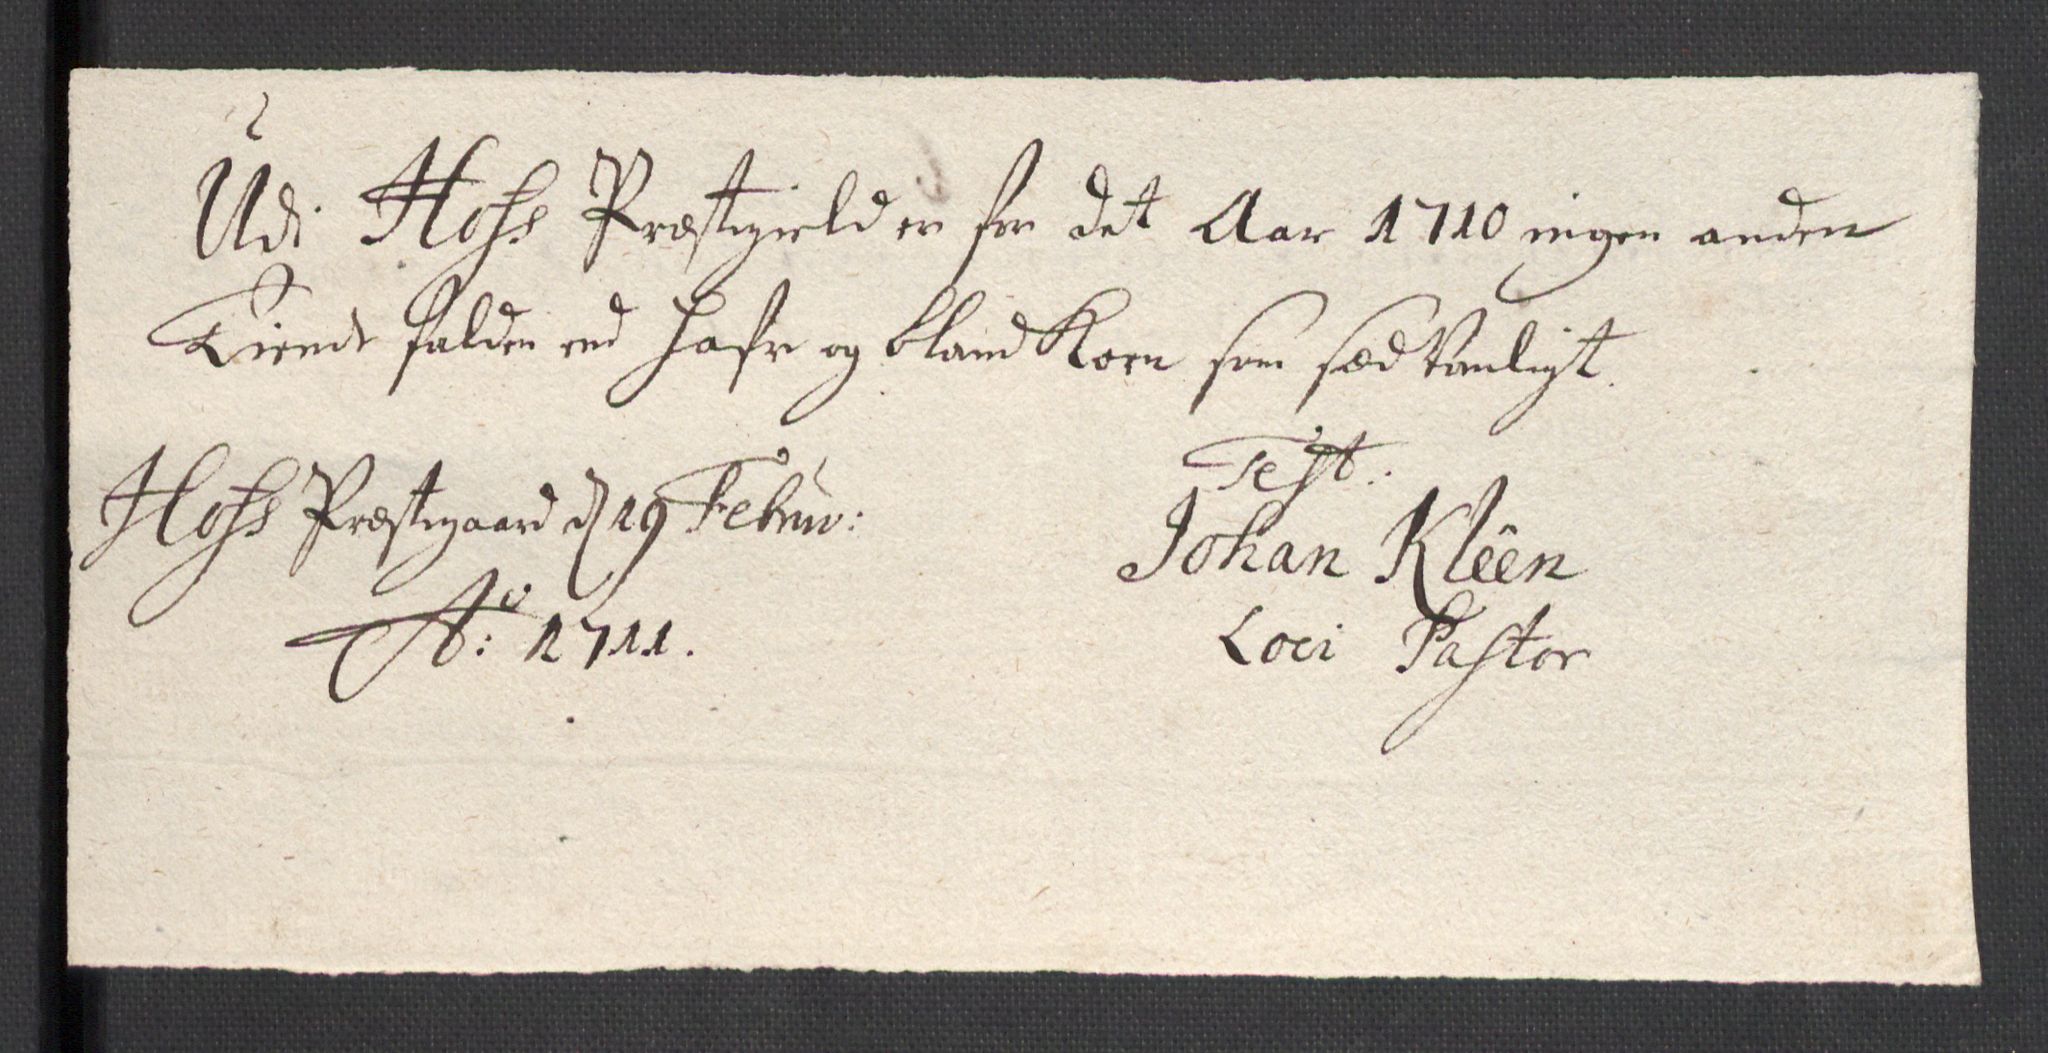 Udi Hofs Præstegield er for det Aar 1710 ingen anden
Tiende falden end Hafre og bland Korn som sædvanligt.
Test:
Hofs Præstegaard d 19 Februar:
Johan Klêen
Aᵒ: 1711.
Loci Pastor